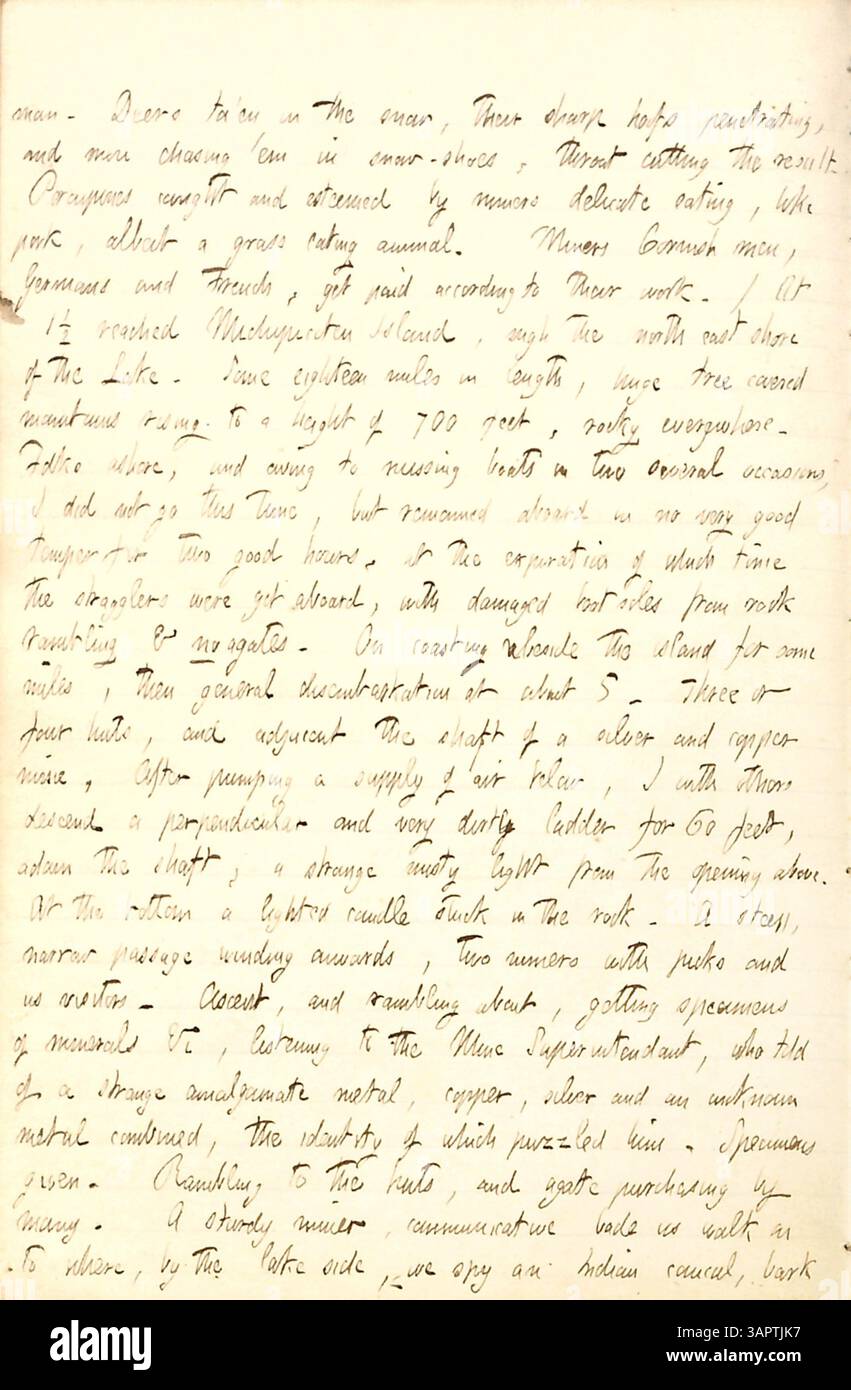 man - Deers ta'en in the snow, their sharp hoofs penetrating,
and men chasing 'em in snow-shoes, throat cutting the result.
Porcupines caught and esteemed by miners delicate eating, like
pork, albeit a grass eating animal. Miners Cornish men,
Germans and French, get paid according to their work - / At
1½ reached Michipicoten Island, nigh the north east shore
of the Lake - Some eighteen miles in length, huge tree covered
mountains rising to a height of 700 feet, rocky everywhere -
Folks ashore, and owing to missing boats on two several occasions,
I did not go this time, but remained aboard in no very good
temper for two good hours, at the expiration of which time
the stragglers were got aboard, with damaged boot soles from rock
rambling & no agates - On coasting beside the island for some
miles, then general disembarkation at about 5 - Three or
four huts, and adjacent the shaft of a silver and copper
mine, After pumping a supply of air below, I with others
descend a perpendicular and very dirty ladder for 60 feet,
adown the shaft, a strange misty light from the opening above.
At the bottom a lighted candle stuck in the rock - A steep,
narrow passage winding onwards, two miners with picks and
us visitors - Ascent, and rambling about, getting specimens
of minerals &c, listening to the Mine Superintendant, who told
of a strange amalgamate metal, copper, silver and an unknown
metal combined, the identity of which puzzled him - Specimens
given - Rambling to the huts, and agate purchasing by
many - A sturdy miner, communicative bade us walk on
to where, by the lake side, we spy an Indian bark
alamy
Image ID: 3APTJK7
www.alamy.com